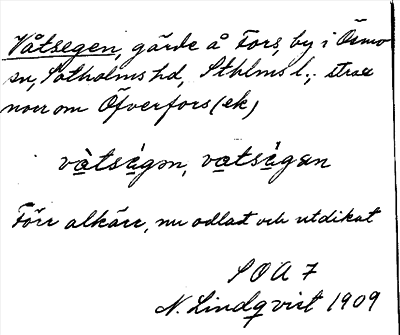 Våtsegen, gärde å Fors, by i Ösmo
sn, Sotholms hd, Sthlms l.; strax
norr om Öfverfors (ek)
vàtsègən, vatsègan
Förr alkärr, nu odlat och utdikat
SOA 7
N. Lindqvist 1909